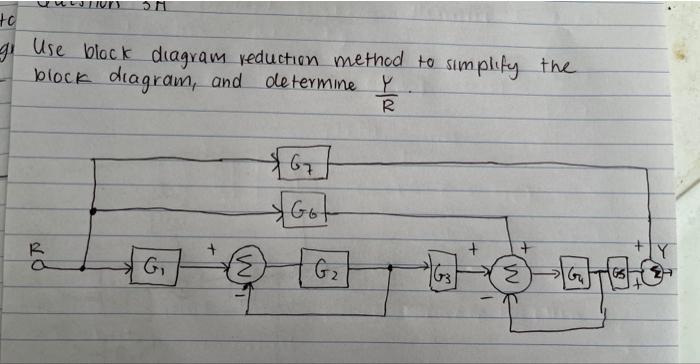 Question 3A
Use block diagram reduction method to simplify the
block diagram, and determine Y/R.
G7
G6
R + + + + Y
G1 Σ G2 G3 Σ G4 G5 Σ
- - +